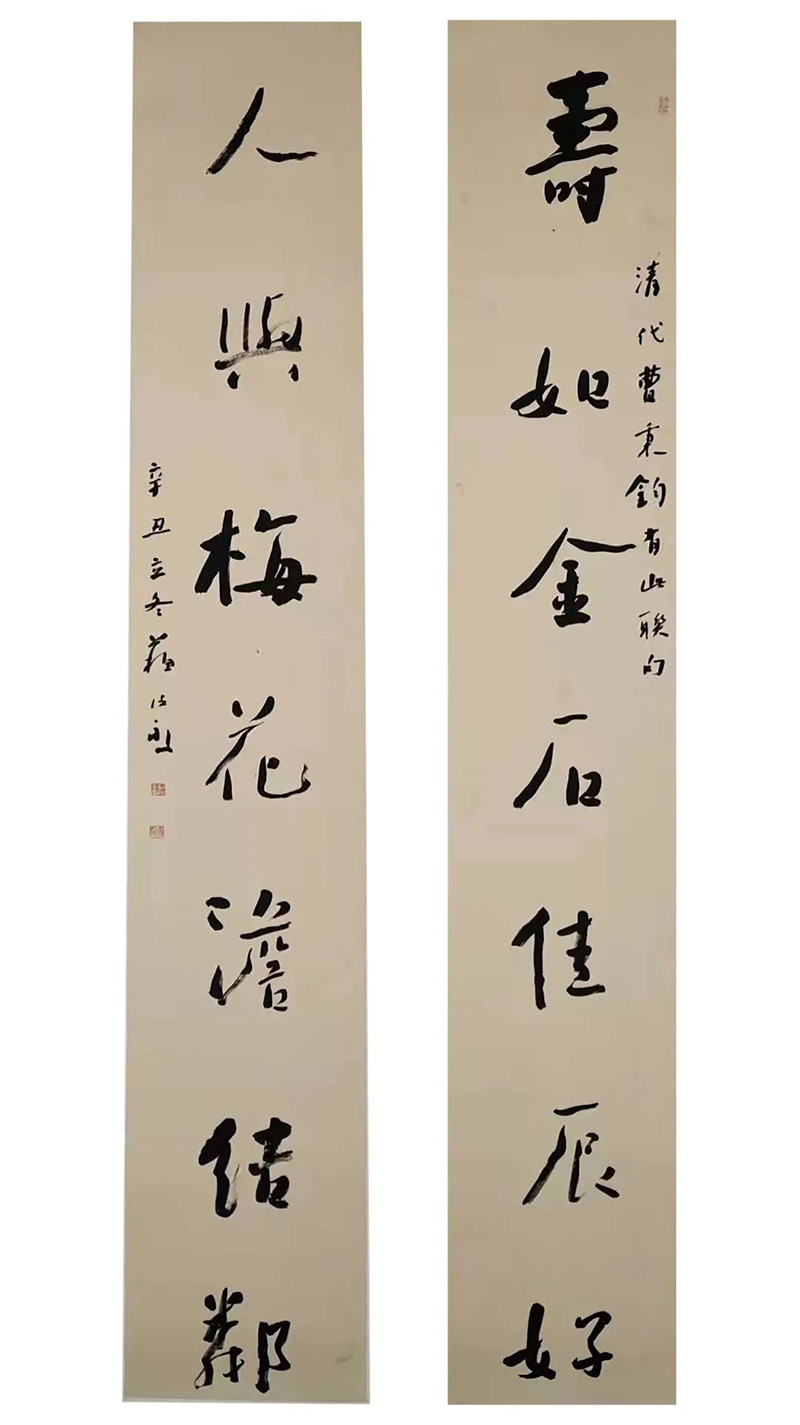 壽如金石佳辰好
清代曹秉鈞有此聯句
人與梅花澹結鄰
辛丑立冬